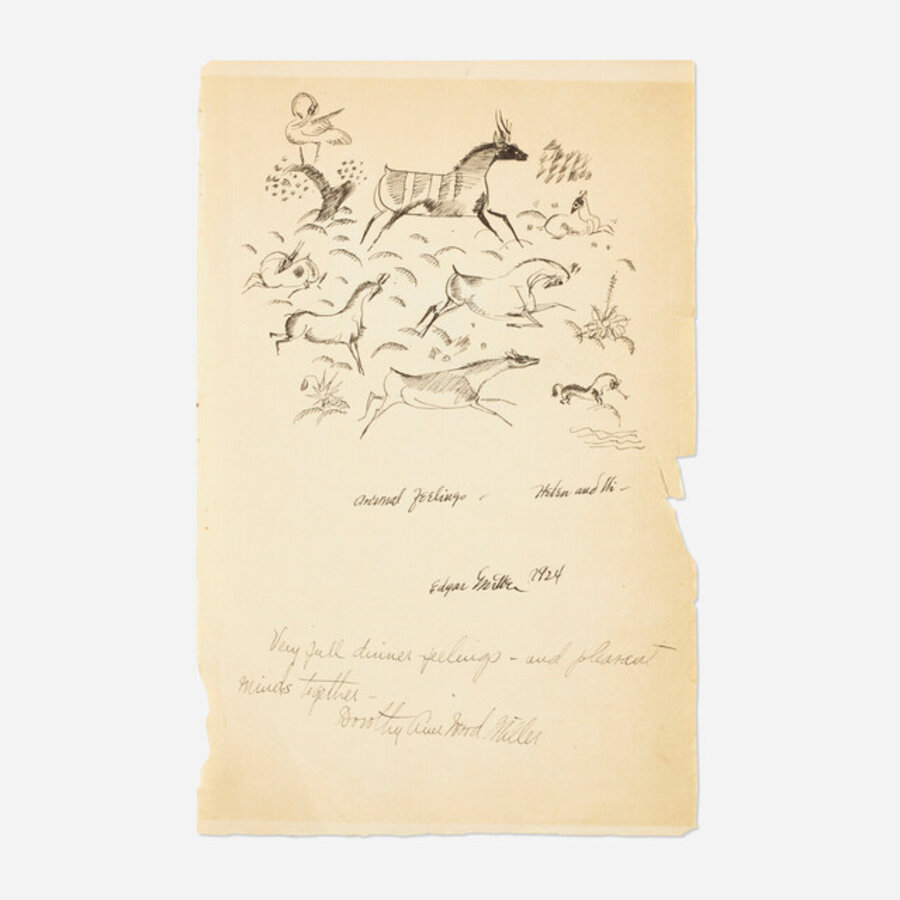 animal feelings - Helen and Hi -
Edgar Miller 1924
Very full dinner feelings - and pleasant
minds together -
Dorothy Ann Wood Miller